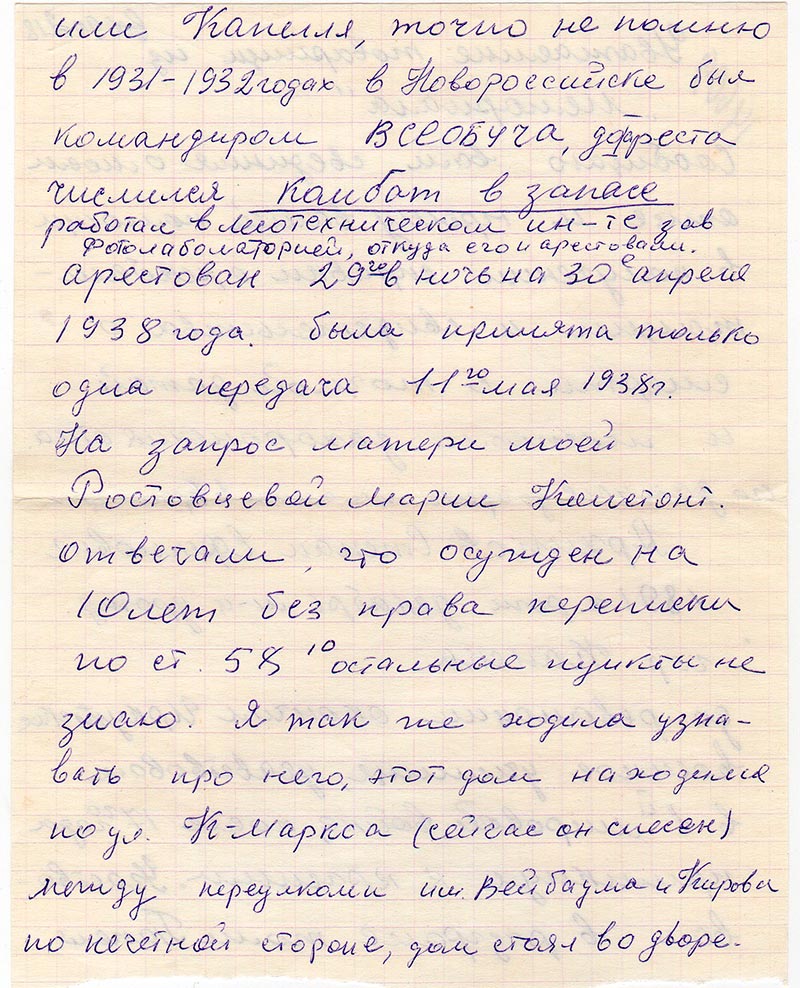 ими Капелля, точно не помню
в 1931-1932 годах в Новороссийске был
командиром ВСЕОБУЧА, до ареста
числился комбат в запасе
работал в Лесотехническом ин-те зав
Фотолабоматорией, откуда его и арестовали.
арестован 29го в ночь на 30е апреля
1938 года. была принята только
одна передача 11го мая 1938г.
На запрос матери моей
Ростовцевой Марии Констант.
отвечали, что осужден на
10 лет без права переписки
по ст. 58 10 остальные пункты не
знаю. Я так же ходила узна-
вать про него, этот дом находился
по ул. К-Маркса (сейчас он снесен)
между переулкоми им. Вейнбаума и Кирова
по нечетной стороне, дом стоял во дворе.